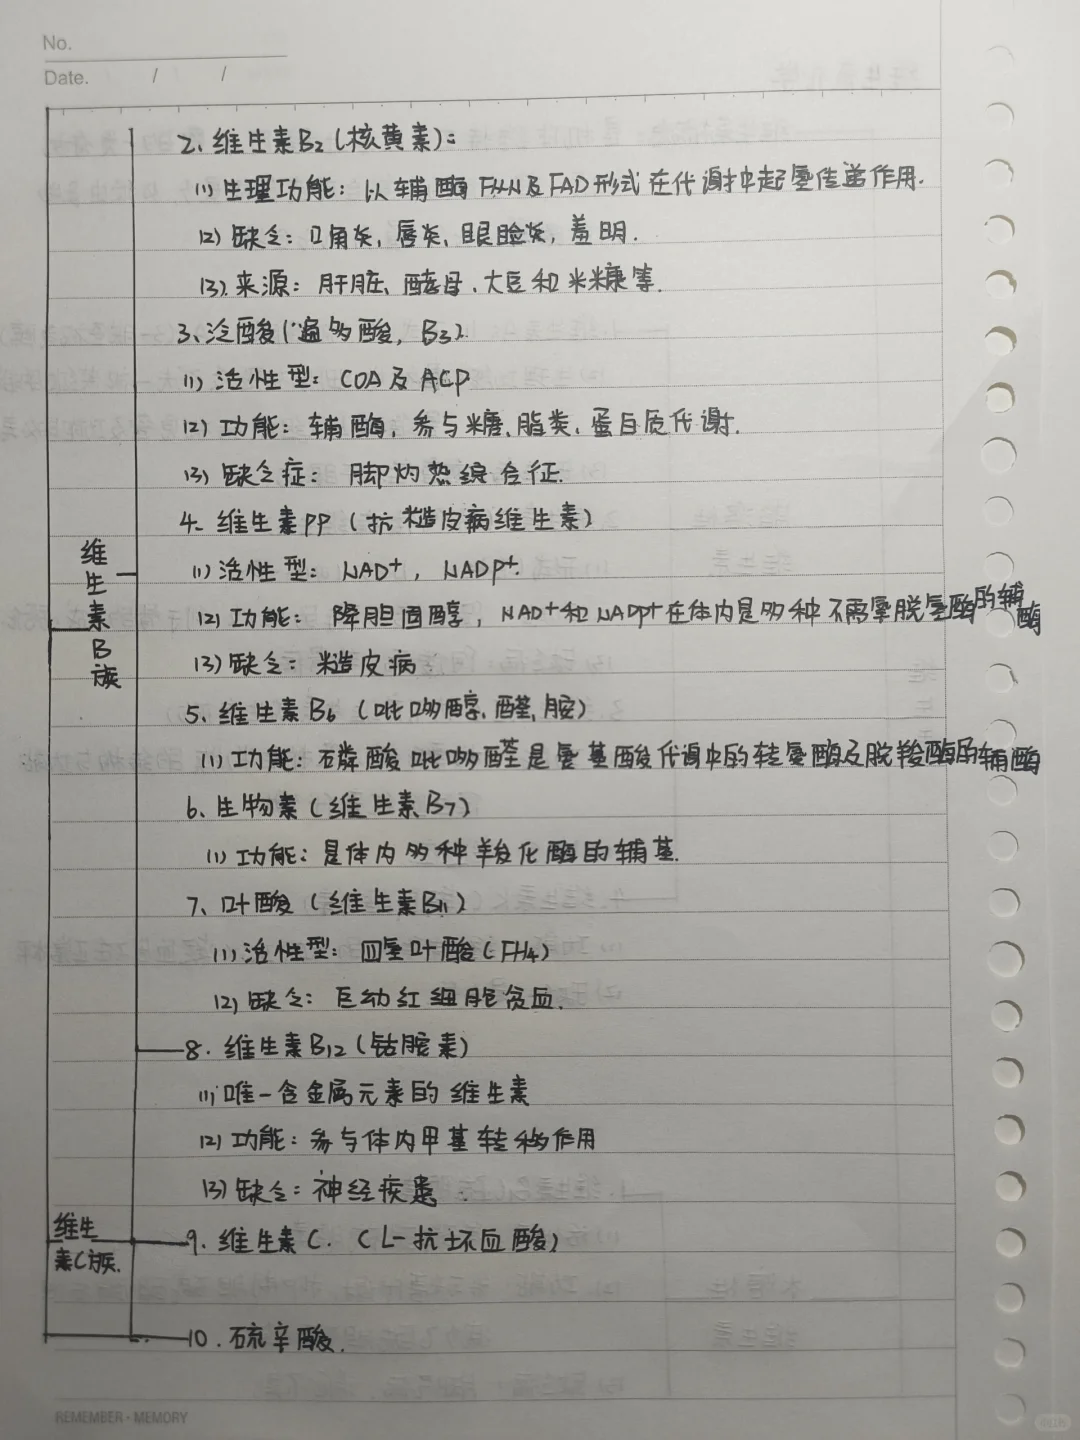 No.
Date. / /
2、维生素B2(核黄素):
(1)生理功能:以辅酶FMN及FAD形式在代谢中起氢传递作用.
(2)缺乏:口角炎、唇炎、眼睑炎、羞明.
(3).来源:肝脏、酵母、大豆和米糠等.
3、泛酸(遍多酸,B3).
(1)活性型:COA及ACP
(2)功能:辅酶,参与糖、脂类、蛋白质代谢.
(3)缺乏症:脚灼热综合征.
4、维生素PP(抗糙皮病维生素)
(1)活性型:NAD+,NADP+.
(2)功能:降胆固醇,NAD+和NADP+在体内是多种不需氧脱氢酶的辅酶
(3)缺乏:糙皮病
5、维生素B6(吡哆醇、醛、胺)
(1)功能:磷酸吡哆醛是氨基酸代谢中的转氨酶及脱羧酶的辅酶
6、生物素(维生素B7)
(1)功能:是体内多种羧化酶的辅基.
7、叶酸(维生素B11)
(1)活性型:四氢叶酸(FH4)
(2)缺乏:巨幼红细胞贫血.
8.维生素B12(钴胺素)
(1)唯一含金属元素的维生素
(2)功能:参与体内甲基转移作用
(3)缺乏:神经疾患.
9.维生素C.(L-抗坏血酸)
10.硫辛酸.
维生素B族
维生
素C族.
REMEMBER·MEMORY